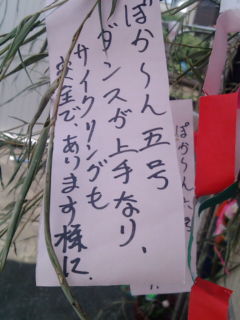 ぽか〜ん五号
ダンスが上手なり、
サイクリングも
安全で、あります様に。
ぽか〜ん